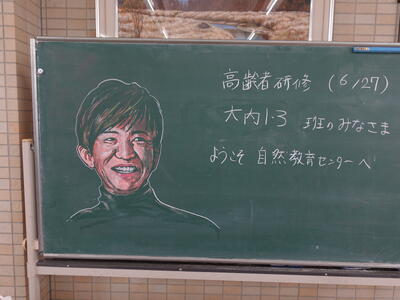 高齢者研修 (6/27)
大内1・3 班のみなさま
ようこそ 自然教育センターへ